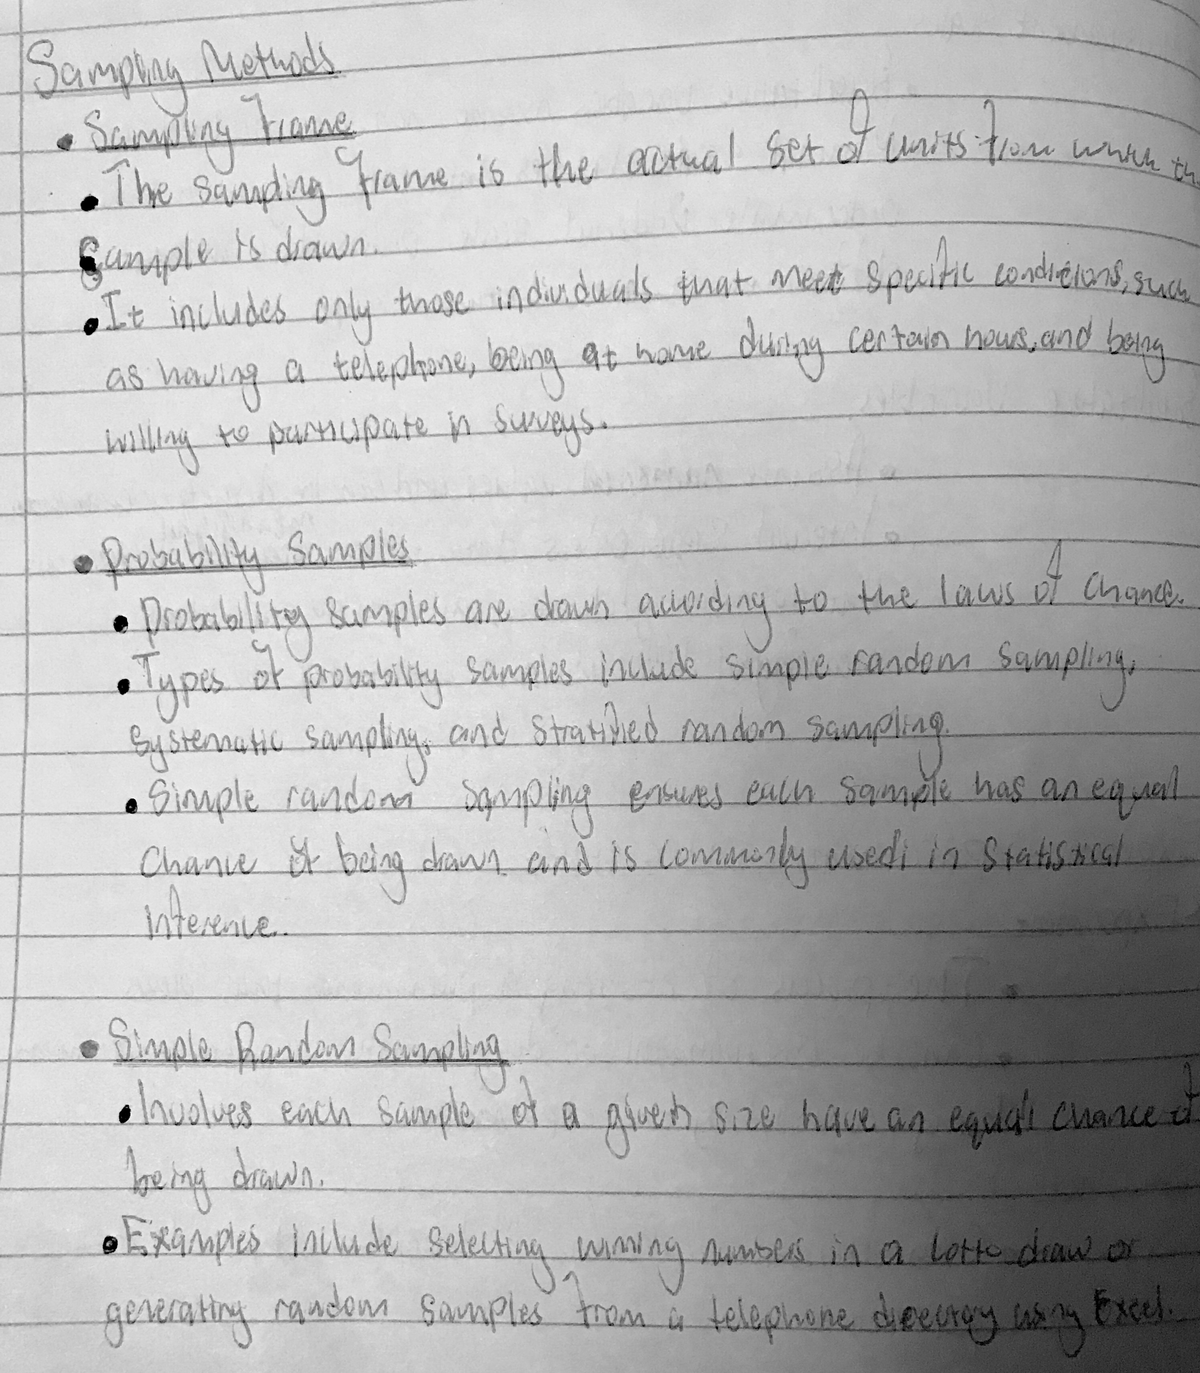 Sampling Methods
• Sampling Frame
• The sampling frame is the actual set of units from which th
Sample is drawn.
• It includes only those individuals that meet specific conditions, such
as having a telephone, being at home during certain hours, and being
willing to participate in surveys.
• Probability Samples
• Probability samples are drawn according to the laws of chance.
• Types of probability samples include simple random sampling,
systematic sampling, and stratified random sampling.
• Simple random sampling ensures each sample has an equal
chance of being drawn and is commonly used in statistical
inference.
• Simple Random Sampling
• Involves each sample of a given size have an equal chance of
being drawn.
• Examples include selecting winning numbers in a lotto draw or
generating random samples from a telephone directory using Excel.